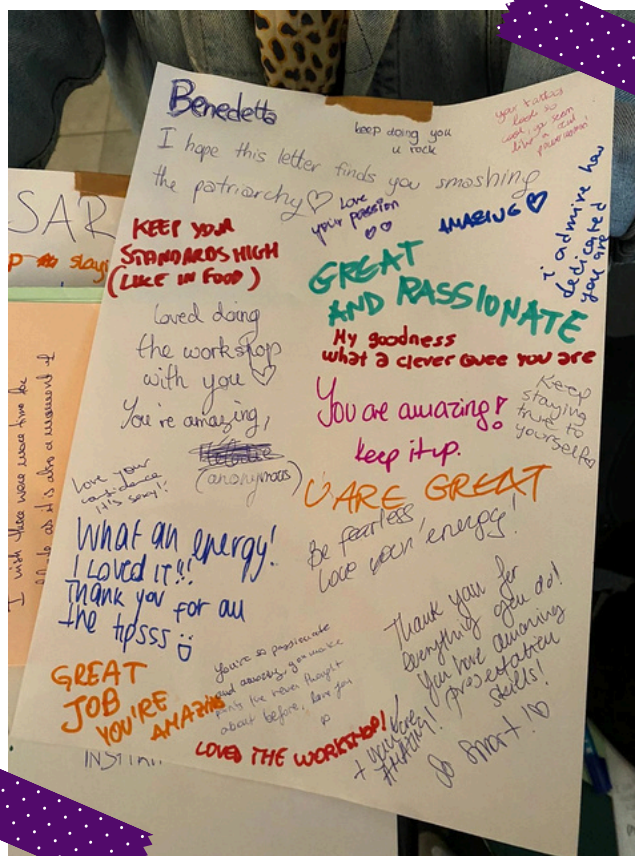 Benedetta
keep doing you
u rock
your tattoos
look so
cool, you seem
like a
powerwoman!
I hope this letter finds you smashing
the patriarchy♡
love
your passion
♡♡
AMAZING ♡
i admire how
dedicated
you are
KEEP YOUR
STANDARDS HIGH
(LIKE IN FOOD)
GREAT
AND PASSIONATE
My goodness
what a clever quee you are
Loved doing
the workshop
with you ♡
You're amazing,
(anonymous)
You are amazing!
keep it up.
Keep
staying
true to
yourself♡
Love your
confidence
it's sexy!!
U ARE GREAT
Be fearless
Love your energy!
What an energy!
I LOVED IT!!
Thank you for all
the tipsss
Thank you for
everything you do!
You have amazing
presentation
skills!
So smart!♡
GREAT
JOB
YOU'RE
AMAZING
You're so passionate
and amazing, you make
points I've never thought
about before, love you
LOVED THE WORKSHOP!
+ you're
AMAZING!
SAR
slayi
I wish there were more time for
as it is also a moment of